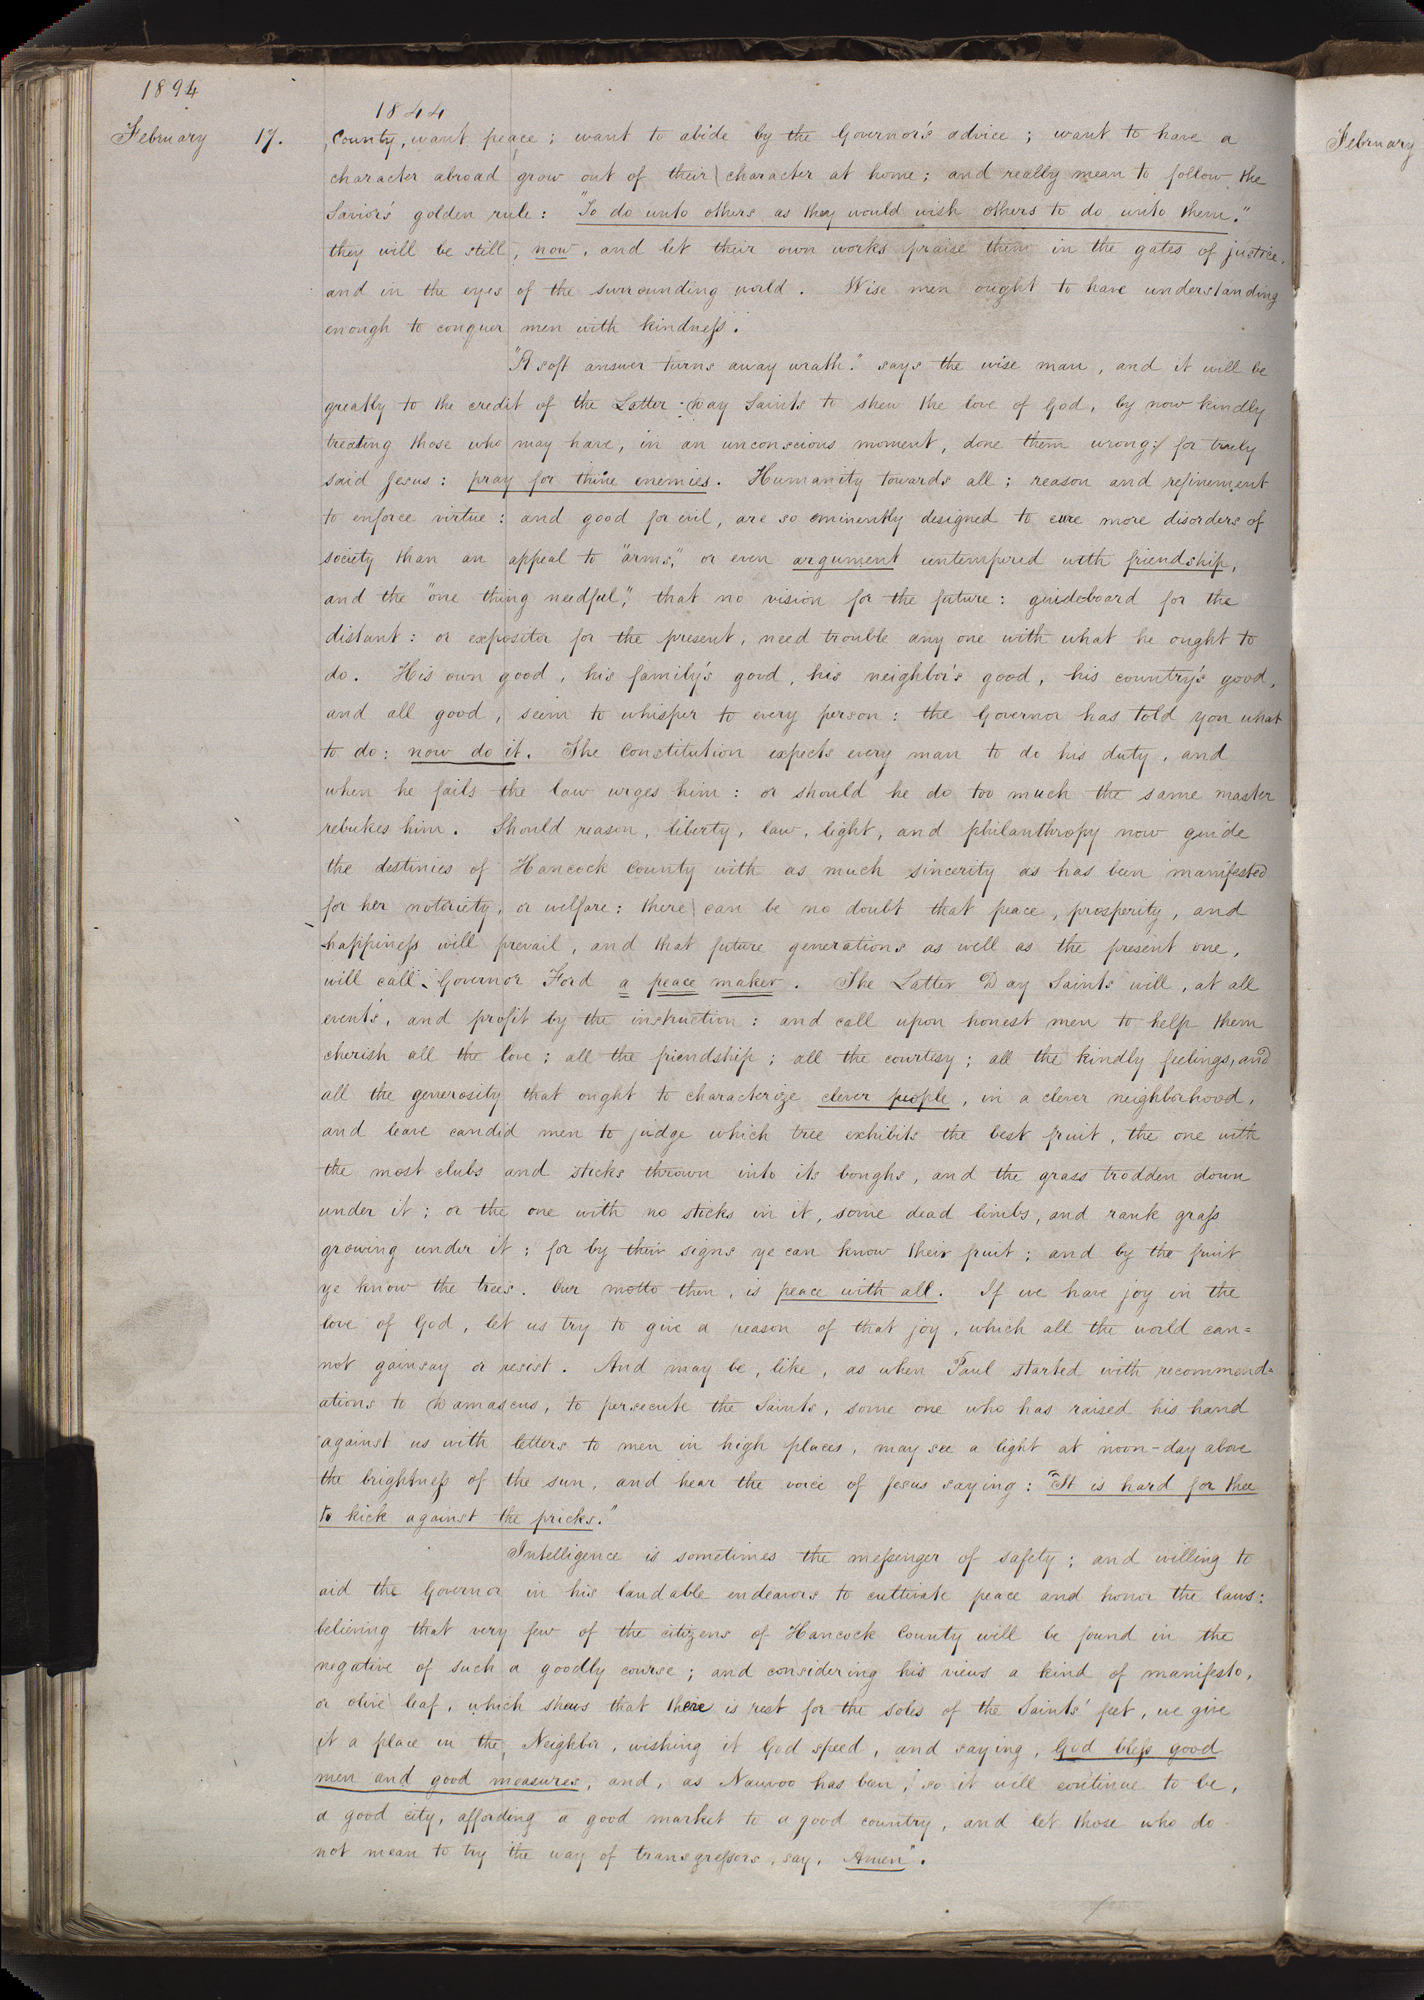 1894
1844
February 17. County, want peace; want to abide by the Governor's advice; want to have a
character abroad grow out of their character at home; and really mean to follow the
Savior's golden rule: "To do unto others as they would wish others to do unto them."
they will be still, now, and let their own works praise them in the gates of justice,
and in the eyes of the surrounding world. Wise men ought to have understanding
enough to conquer men with kindness.
"A soft answer turns away wrath." says the wise man, and it will be
greatly to the credit of the Latter-Day Saints to shew the love of God, by now kindly
treating those who may have, in an unconscious moment, done them wrong; for truly
said Jesus: pray for thine enemies. Humanity towards all; reason and refinement
to enforce virtue: and good for evil, are so eminently designed to cure more disorders of
society than an appeal to "arms," or even argument untempered with friendship,
and the "one thing needful," that no vision for the future: guideboard for the
distant: or expositor for the present, need trouble any one with what he ought to
do. His own good, his family's good, his neighbor's good, his country's good,
and all good, seem to whisper to every person: the Governor has told you what
to do: now do it. The Constitution expects every man to do his duty, and
when he fails the law urges him: or should he do too much the same master
rebukes him. Should reason, liberty, law, light, and philanthropy now guide
the destinies of Hancock County with as much sincerity as has been manifested
for her notoriety, or welfare: there can be no doubt that peace, prosperity, and
happiness will prevail, and that future generations as well as the present one,
will call Governor Ford a peace maker. The Latter Day Saints will, at all
events, and profit by the instruction: and call upon honest men to help them
cherish all the love; all the friendship; all the courtesy; all the kindly feelings, and
all the generosity that ought to characterize clever people, in a clever neighborhood,
and leave candid men to judge which tree exhibits the best fruit, the one with
the most clubs and sticks thrown into its boughs, and the grass trodden down
under it; or the one with no sticks in it, some dead limbs, and rank grass
growing under it; for by their signs ye can know their fruit; and by the fruit
ye know the trees. Our motto then, is peace with all. If we have joy in the
love of God, let us try to give a reason of that joy, which all the world can=
not gainsay or resist. And may be, like, as when Paul started with recommend=
ations to Damascus, to persecute the Saints, some one who has raised his hand
against us with letters to men in high places, may see a light at noon-day above
the brightness of the sun, and hear the voice of Jesus saying: "It is hard for thee
to kick against the pricks."
Intelligence is sometimes the messenger of safety; and willing to
aid the Governor in his laudable endeavors to cultivate peace and honor the laws:
believing that very few of the citizens of Hancock County will be found in the
negative of such a goodly course; and considering his views a kind of manifesto,
or olive leaf, which shews that there is rest for the soles of the Saints' feet, we give
it a place in the Neighbor, wishing it God speed, and saying, God bless good
men and good measures, and, as Nauvoo has been, so it will continue to be,
a good city, affording a good market to a good country, and let those who do
not mean to try the way of transgressors, say, Amen".
February